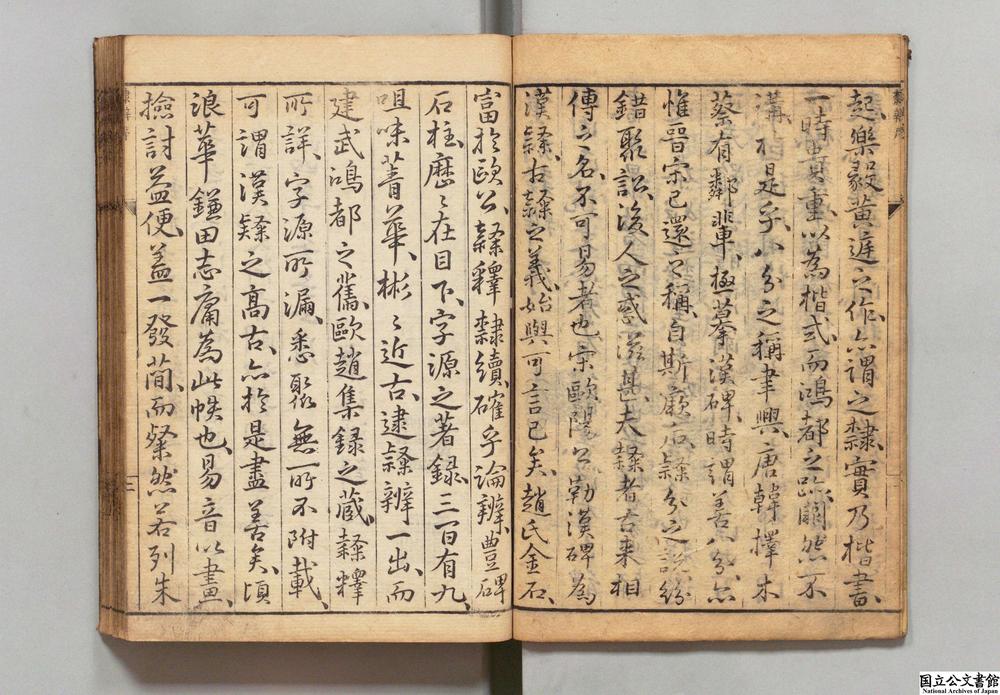 起、樂毅黃庭之作、亦謂之隸、實乃楷書、
一時貴重以為楷式、而鴻都之跡、闃然不
講、不是乎、八分之稱聿興、唐韓擇木
蔡有鄰輩、極摹漢碑、時謂善八分、亦
惟晋宋已還之稱、自斯厥后、隸分之說紛
錯聚訟、後人之惑滋甚、夫隸者古来相
傳之名、不可易者也、宋歐陽公勒漢碑為
漢隸、古隸之義、始與可言已矣、趙氏金石、
富於歐公、隸釋隸續、確乎論辨、豊碑
石柱、歴〻在目下、字源之著録、三百有九、
咀味菁華、彬〻近古、逮隸辨一出、而
建武鴻都之舊、歐趙集録之蔵、隸釋
所詳、字源所漏、悉聚無所不附載、
可謂漢隸之高古、亦於是盡善矣、頃
浪華鎌田志庸為此帙也、易音以畫、
撿討益便、蓋一發蕑、而粲然若列朱
隸辨序
二
国立公文書館
National Archives of Japan